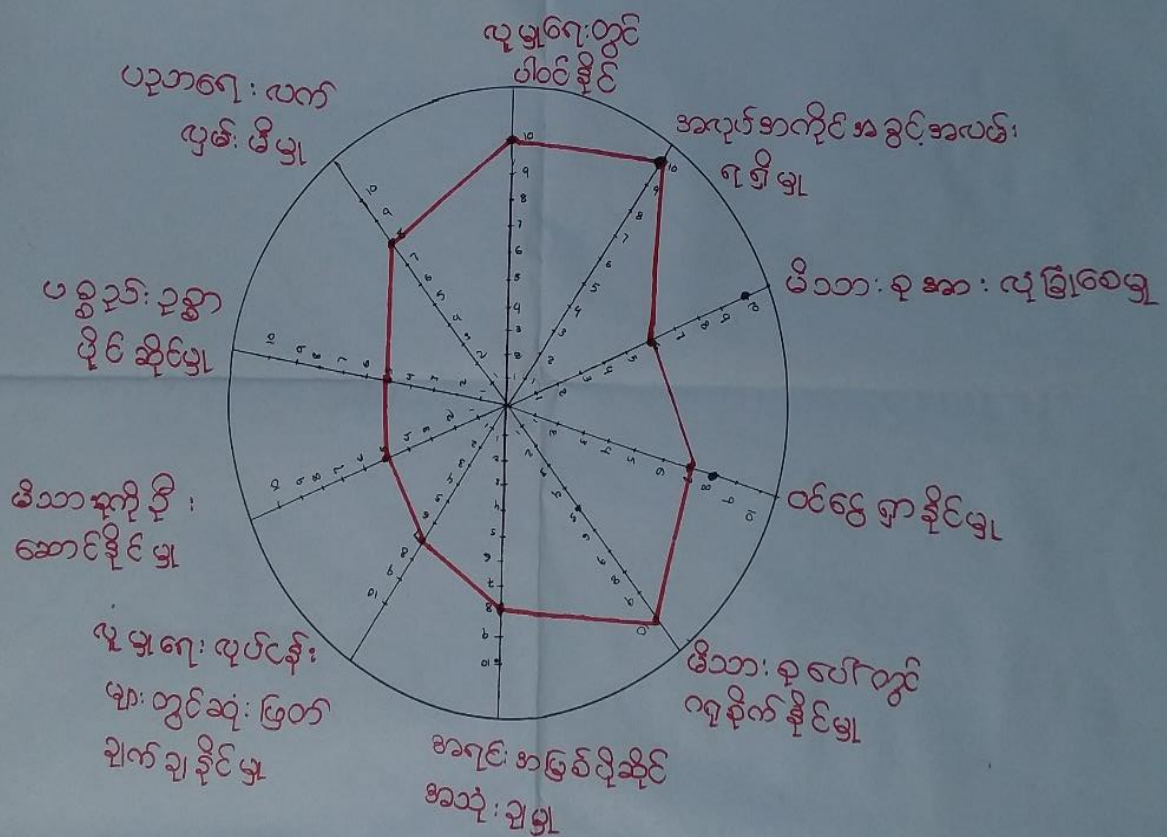 လူမှုရေးတွင်
ပါဝင်နိုင်
အလုပ်အကိုင်အခွင့်အလမ်း
ရရှိမှု
မိသားစုအားလုံခြုံစေမှု
ဝင်ငွေရှာနိုင်မှု
မိသားစုပေါ်တွင်
ဂရုစိုက်နိုင်မှု
အရင်းအမြစ်ပိုဆိုင်
အသုံးချမှု
လူမှုရေးလုပ်ငန်း
များတွင်ဆုံးဖြတ်
ချက်ချနိုင်မှု
မိသားစုကိုဦး
ဆောင်နိုင်မှု
ပစ္စည်းဥစ္စာ
ပိုင်ဆိုင်မှု
ပညာရေးလက်
လှမ်းမီမှု